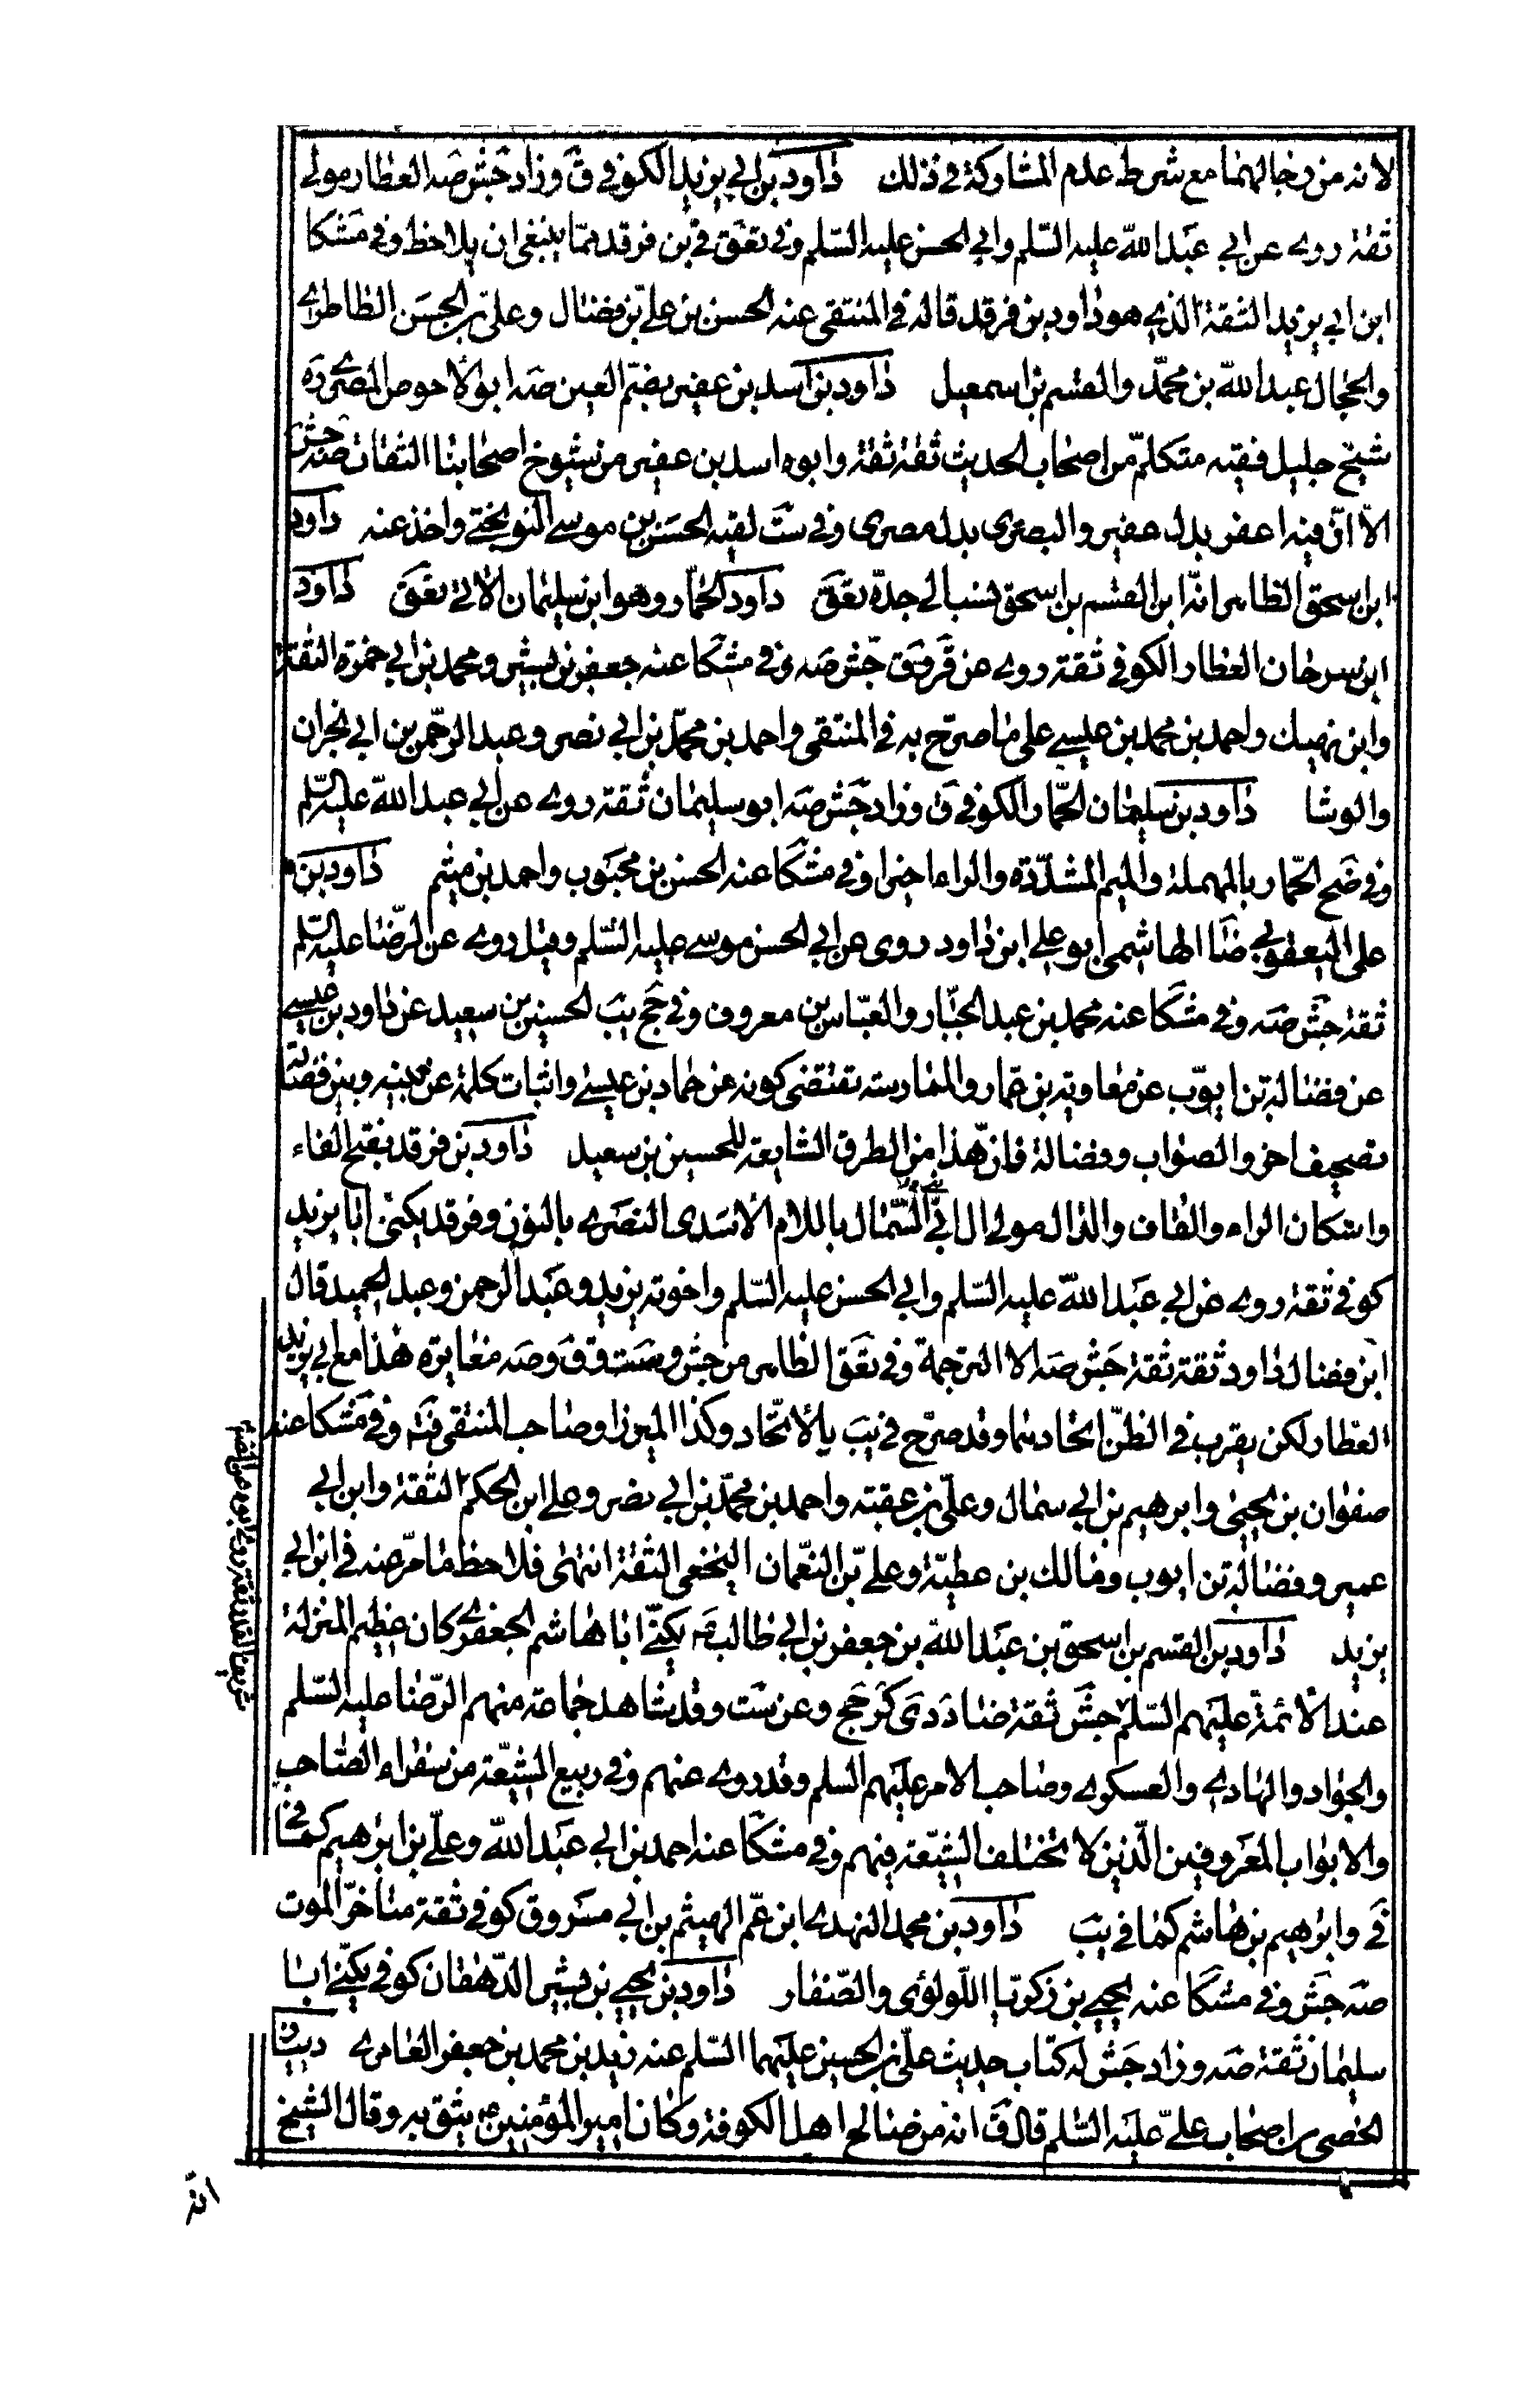 لانه من رجالهما مع شرط عدم المشاركة في ذلك داود بن ابي يزيد الكوفي ق وزاد جش صه العطار مولى
ثقة روى عن ابي عبد الله عليه السّلم وابي الحسن عليه السّلم وفي تعق في بن فرقد ممّا ينبغي ان يلاحظ وفي مشكا
ابن ابي يزيد الثقة الذي هو داود بن فرقد قاله في المنتقى عنه الحسن بن علي بن فضال وعليّ بن الحسن الطاطري
والحجال عبد الله بن محمّد والقسم بن اسمعيل داود بن اسد بن عفير بضمّ العين صه ابو الاحوص المصري ره
شيخ جليل فقيه متكلّم من اصحاب الحديث ثقة ثقة وابوه اسد بن عفير من شيوخ اصحابنا الثقات صه جش
الّا انّ فيه اعفر بدل عفير والبصري بدل مصري وفي ست لقيه الحسن بن موسى النوبختي واخذ عنه داود
ابن اسحق الظاهر انّه ابن القسم بن اسحق نسب الى جدّه تعق داود الحمّار وهو ابن سليمان الاتي تعق داود
ابن سرحان العطار الكوفي ثقة روى عن ق جش صه وفي مشكا عنه جعفر بن بشير ومحمد بن ابي حمزة الثقة
وابن نهيك واحمد بن محمد بن عيسى على ما صرّح به في المنتقى واحمد بن محمّد بن ابي نصر وعبد الرحمن بن ابي نجران
والوشا داود بن سليمان الحمّار الكوفي ق وزاد جش صه ابو سليمان ثقة روى عن ابي عبد الله عليه السّلم
وفي ضح الحمّار بالمهملة والميم المشدّدة والراء اخيرا وفي مشكا عنه الحسن بن محبوب واحمد بن ميثم داود بن
علي اليعقوبي ضا الهاشمي ابو علي ابن داود روى عن ابي الحسن موسى عليه السّلم وقيل روى عن الرّضا عليه السّلم
ثقة جش صه وفي مشكا عنه محمد بن عبد الجبّار والعبّاس بن معروف وفي حج يب الحسين بن سعيد عن داود بن عيسى
عن فضالة بن ايوّب عن معاوية بن عمار والممارسة تقتضي كونه عن حماد بن عيسى واثبات كلمة عن بينه وبين فضالة
تصحيف اخر والصواب وفضالة فانّ هذا من الطرق الشايعة للحسين بن سعيد داود بن فرقد بفتح الفاء
واسكان الراء والقاف والدال مولى ال ابي السّمال باللام الاسدي النصري بالنون وفرقد يكنى ابا يزيد
كوفي ثقة روى عن ابي عبد الله عليه السّلم وابي الحسن عليه السّلم واخوته يزيد وعبد الرحمن وعبد الحميد قال
ابن فضال داود ثقة ثقة جش صه الا الترجمة وفي تعق الظاهر من جش وست وق وصه مغايرة هذا مع ابي يزيد
العطار لكن يقرب في الظنّ اتحادهما وقد صرّح في يب بالاتّحاد وكذا الميرزا وصاحب المنتقى وفي مشكا عنه
صفوان بن يحيى وابرهيم بن ابي سمال وعليّ بن عقبة واحمد بن محمّد بن ابي نصر وعلي ابن الحكم الثقة وابن ابي
عمير وفضالة بن ايوب ومالك بن عطيّة وعلي بن النعمان النخعي الثقة انتهى فلاحظ ما مرّ عنه في ابن ابي
يزيد داود بن القسم بن اسحق بن عبد الله بن جعفر بن ابي طالب يكنّى ابا هاشم الجعفري كان عظيم المنزلة
عند الائمة عليهم السّلم جش ثقة ضا د دى كر حج وعن ست وقد شاهد جماعة منهم الرّضا عليه السّلم
والجواد والهادي والعسكري وصاحب الامر عليهم السلم وقد روى عنهم وفي ربيع الشيعة من سفراء الصّاحب
والابواب المعروفين الّذين لا تختلف الشيعة فيهم وفي مشكا عنه احمد بن ابي عبد الله وعلي بن ابرهيم كما في
في وابرهيم بن هاشم كما في يب داود بن محمد النهدي ابن عمّ الهيثم بن ابي مسروق كوفي ثقة متاخر الموت
صه جش وفي مشكا عنه يحيى بن زكريّا اللّولؤي والصّفار داود بن يحيى بن بشير الدّهقان كوفي يكنّى ابا
سليمان ثقة صه وزاد جش له كتاب حديث عليّ بن الحسين عليهما السّلم عنه زيد بن محمد بن جعفر العامري
من اصحاب عليّ عليه السّلم قال ق انه من صالح اهل الكوفة وكان امير المؤمنين يثق به وقال الشيخ
انّه